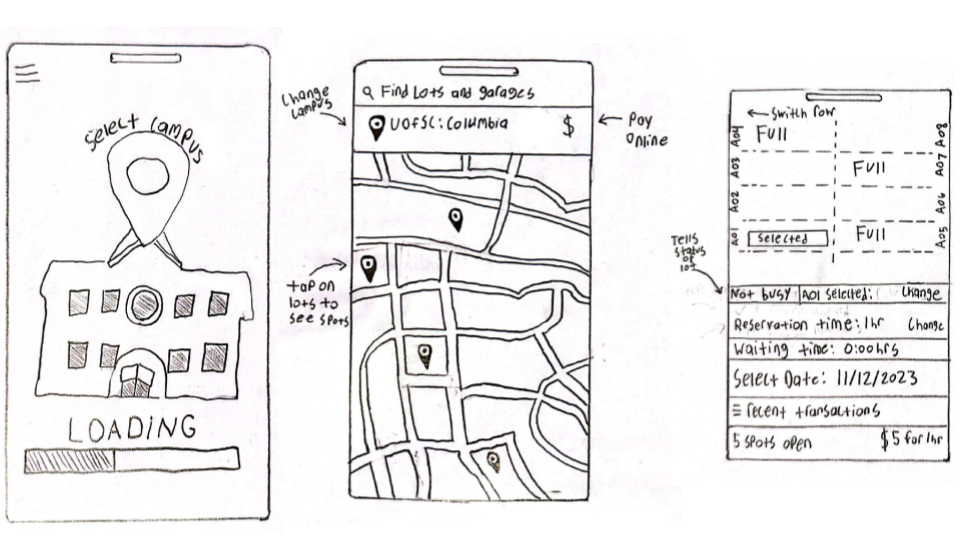 Select Campus
LOADING
Change
Campus
Find Lots and garages
UOFSC: Columbia
$
Pay
Online
tap on
lots to
see spots
Switch row
A04
Full
A08
A03
Full
A07
A02
A06
A01
Selected
Full
A05
Tells
status
of
lot
Not busy
A01 selected:
Change
Reservation time: 1hr
Change
Waiting time: 0:00hrs
Select Date: 11/12/2023
recent transactions
5 spots open
$5 for 1hr